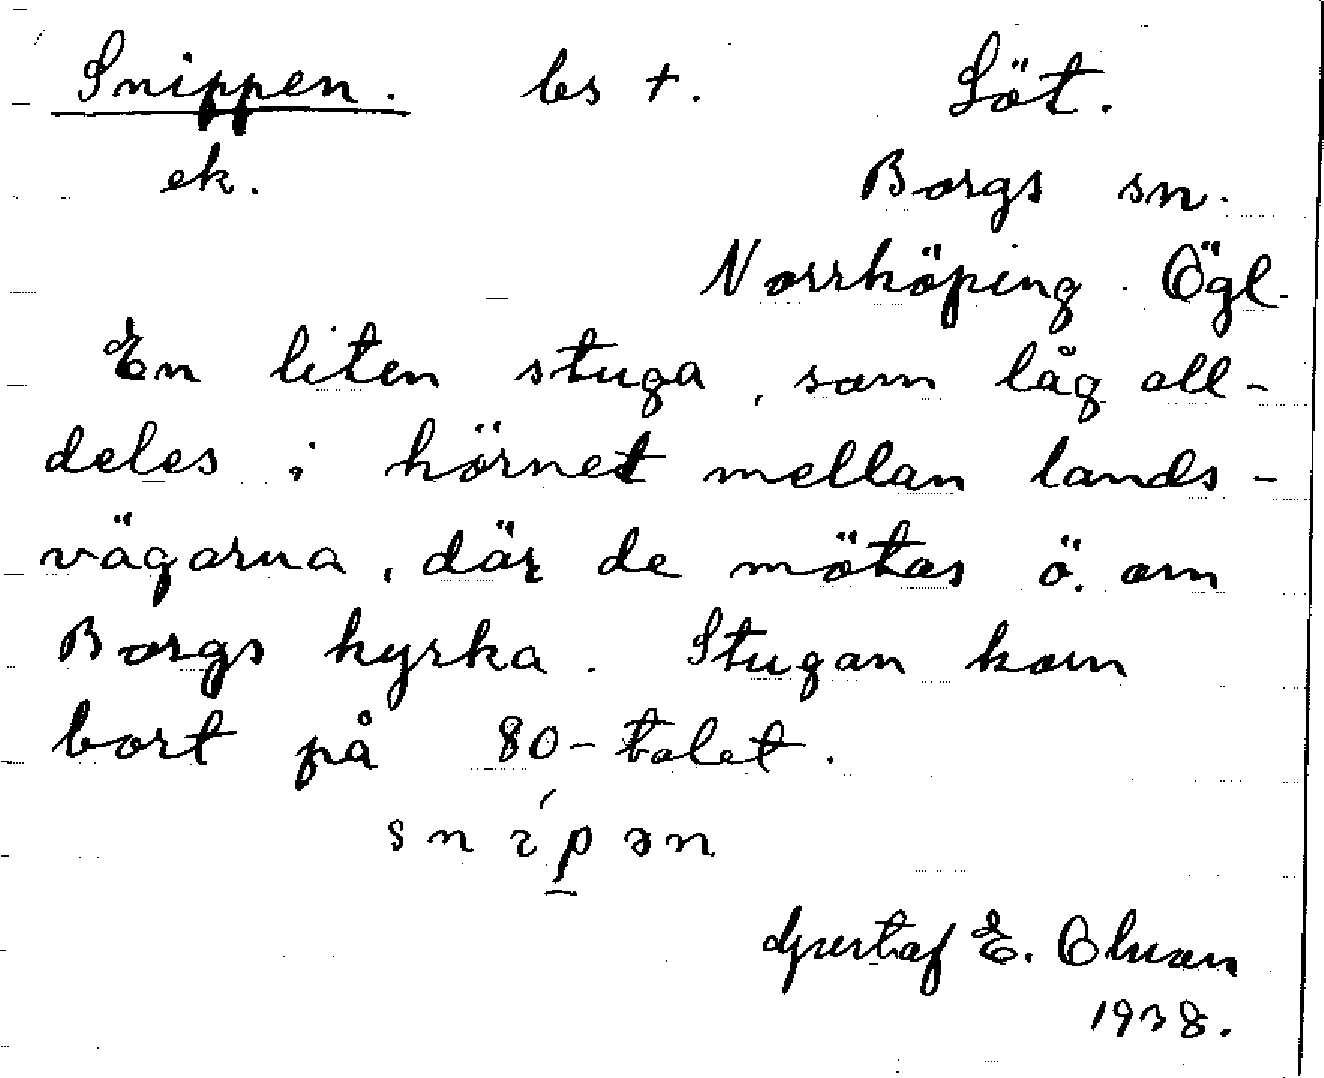 Snippen. bs †. Löt.
ek. Borgs sn.
Norrköping. Ögl.
En liten stuga, som låg all-
deles i hörnet mellan lands-
vägarna, där de mötas ö. om
Borgs kyrka. Stugan kom
bort på 80-talet.
Gustaf E. Olsson
1938.